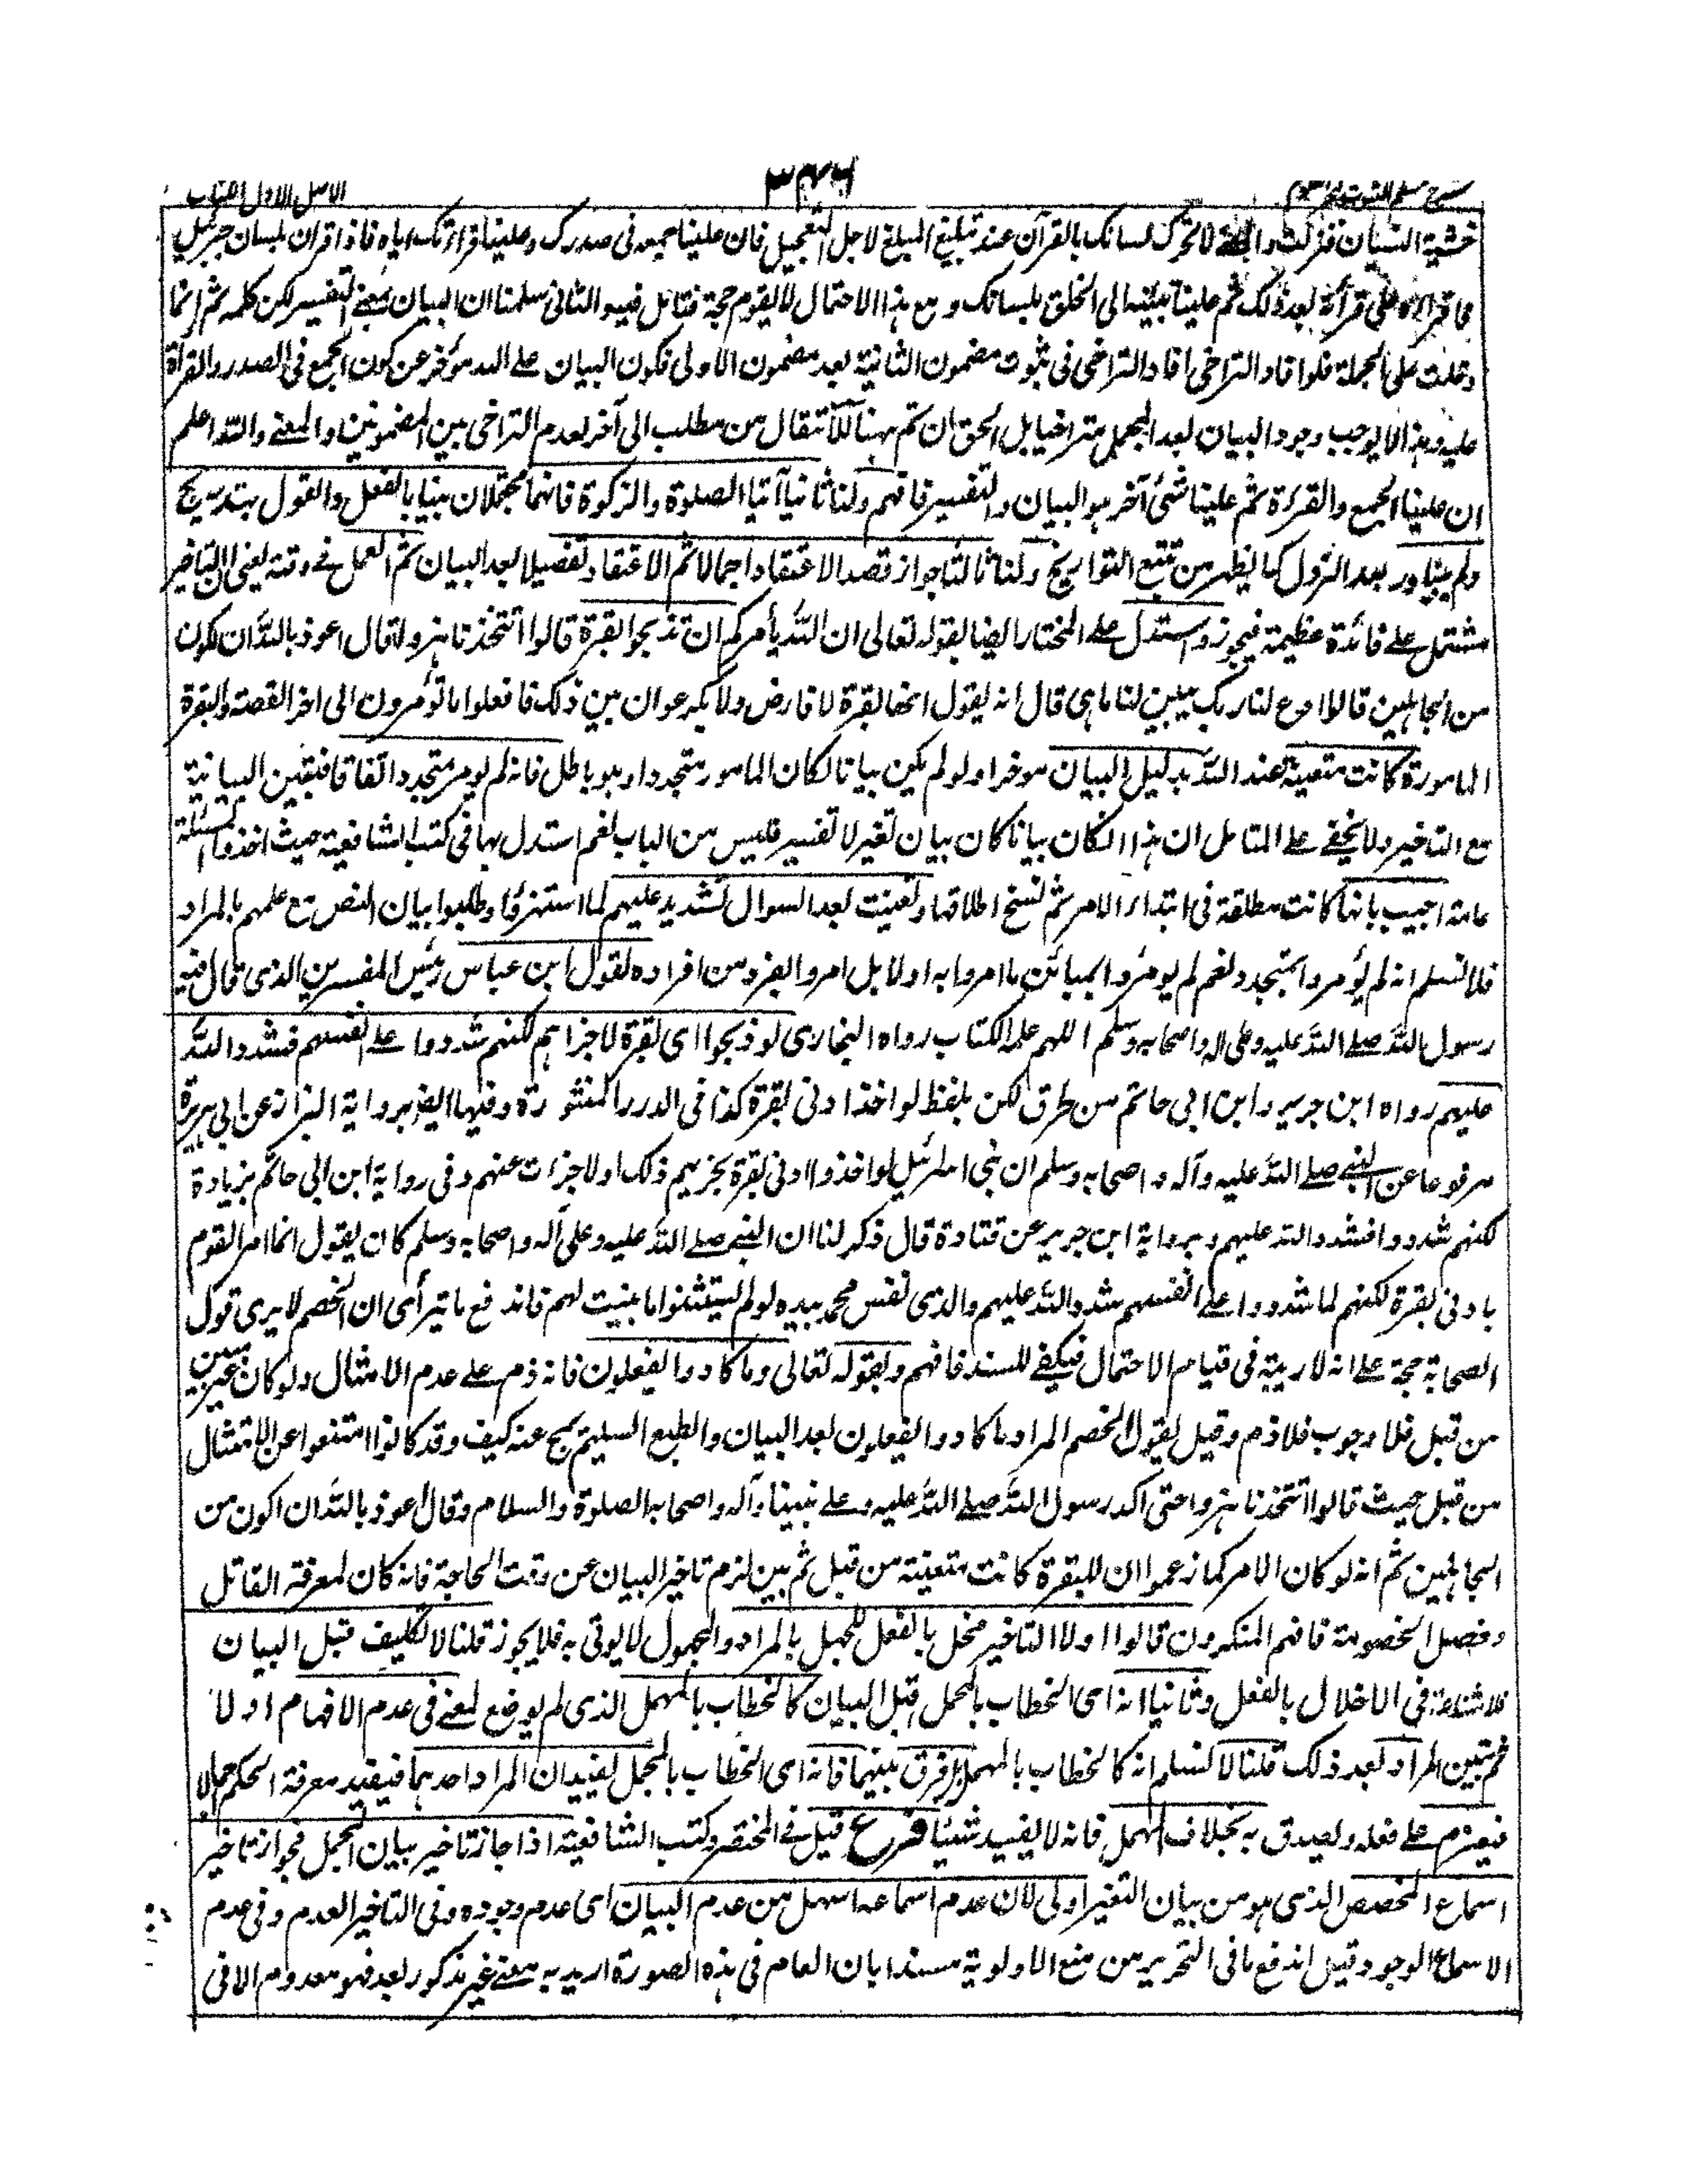 الاصل الاول الكتاب
خشية النسيان فنزلت لا تحرك لسانك بالقرآن عند تبليغ المبلغ لاجل التعجيل فان علينا جمعه فى صدرك وعلينا قرارتك اياه فاذا قران بلسان جبرئيل
بعد ذلك ثم علينا تبيينه الى الخلق بلسانك ومع هذا الاحتمال لا يقوم حجة فتأمل الثانى سلمنا ان البيان بمعنى التفسير لكن كلمه ثم انما
دخلت على الجملة فلو افاد التراخى افاد التراخى فى ثبوت مضمون الثانية بعد مضمون الاولى فكون البيان على الله مؤخر عن كون الجمع فى الصدر والقرأة
عليه وهذا لا يوجب وجود البيان بعد المجمل متراخيا بل الحق ان ثم ههنا للانتقال من مطلب الى آخر لعدم التراخى بين المضمونين والمعنى والله اعلم
ان علينا الجمع والقرءة ثم علينا شئ آخر هو البيان والتفسير فافهم ولنا ثانيا آيتا الصلوة والزكوة فانهما مجملان بينا بالفعل والقول بتدريج
ولم يبينا بعد النزول كما يظهر من تتبع التواريخ ولنا ثالثا جواز قصد الاعتقاد اجمالا ثم الاعتقاد تفصيلا بعد البيان ثم العمل فى وقته يعنى ان التاخير
مشتمل على فائدة عظيمة فيجوز واستدل على المختار ايضا بقوله تعالى ان الله يأمركم ان تذبحوا بقرة قالوا أتتخذنا هزوا قال اعوذ بالله ان اكون
من الجاهلين قالوا ادع لنا ربك يبين لنا ما هى قال انه يقول انها بقرة لا فارض ولا بكر عوان بين ذلك فافعلوا ما تؤمرون الى اخر القصة والبقرة
المامورة كانت متعينة عند الله بدليل البيان موخرا ولو لم يكن بيانا لكان المامور متجددا وهو باطل فانه لم يومر متجدد اتفاقا فتعين البيانية
مع التاخير ولا يخفى على المتامل ان هذا ان كان بيانا كان بيان تغير لا تفسير فليس من الباب نعم استدل بها فى كتب الشافعية حيث اخذوا المسئلة
عامة اجيب بانها كانت مطلقة فى ابتداء الامر ثم نسخ اطلاقها وتعينت بعد السوال لتشديد عليهم لما استهزؤا وطلبوا بيان النص مع علمهم بالمراد
فلا نسلم انه لم يؤمروا بمتجدد نعم لم يومروا بمبائن ما امروا به اولا بل امروا بفرد من افراده لقول ابن عباس رئيس المفسرين الذى قال فيه
رسول الله صلى الله عليه وعلى اله واصحابه وسلم اللهم علمه الكتاب رواه البخارى لو ذبحوا اى بقرة لاجزاهم لكنهم شددوا على انفسهم فشدد الله
عليهم رواه ابن جرير وابن ابى حاتم من طرق لكن بلفظ لو اخذوا ادنى بقرة كذا فى الدرر المنثورة وفيها ايضا برواية البزاز عن ابى هريرة
مرفوعا عن النبى صلى الله عليه وآله واصحابه وسلم ان بنى اسرائيل لو اخذوا ادنى بقرة يجزيهم ذلك او لاجزات عنهم وفى رواية ابن ابى حاتم بزيادة
لكنهم شددوا فشدد الله عليهم وبرواية ابن جرير عن قتادة قال ذكر لنا ان النبى صلى الله عليه وعلى آله واصحابه وسلم كان يقول انما امر القوم
بادنى بقرة لكنهم لما شددوا على انفسهم شدد الله عليهم والذى نفس محمد بيده لو لم يستثنوا ما بينت لهم فاندفع ما يترأى ان الخصم لا يرى قول
الصحابة حجة على انه لا ريبة فى قيام الاحتمال فيكفى للسند فافهم وبقوله تعالى وما كادوا يفعلون فانه ذم على عدم الامتثال ولو كان غير مبين
من قبل فلا وجوب فلا ذم وقيل يقول الخصم المراد ما كادوا يفعلون بعد البيان والطبع السليم يمج عنه كيف وقد كانوا امتنعوا عن الامتثال
من قبل حيث قالوا أتتخذنا هزوا حتى اكد رسول الله صلى الله عليه وعلى نبينا وآله واصحابه الصلوة والسلام وقال اعوذ بالله ان اكون من
الجاهلين ثم انه لو كان الامر كما زعموا ان البقرة كانت متعينة من قبل ثم بين لزم تاخير البيان عن وقت الحاجة فانه كان لمعرفة القاتل
وفصل الخصومة فافهم المنكرون قالوا اولا التاخير مخل بالفعل للجهل بالمراد والمجهول لا يوتى به فلا يجوز قلنا لا تكليف قبل البيان
فلا شناعة فى الاخلال بالفعل وثانيا انه اى الخطاب بالمجمل قبل البيان كالخطاب بالمهمل الذى لم يوضع لمعنى فى عدم الافهام اولا
ثم تبين المراد بعد ذلك قلنا لا نسلم انه كالخطاب بالمهمل بل فرق بينهما فانه اى الخطاب بالمجمل يفيد ان المراد احدهما فيفيد معرفة الحكم اجمالا
فيعزم على فعله ويصدق به بخلاف المهمل فانه لا يفيد شيئا فرع قيل فى المختصر وكتب الشافعية اذا جاز تاخير بيان المجمل فجواز تاخير
اسماع المخصص الذى هو من بيان التغير اولى لان عدم اسماعه اسهل من عدم البيان اى عدم وجوده وفى التاخير العدم وفى عدم
الاسماع الوجود وقيل اندفع ما فى التحرير من منع الاولوية مسندا بان العام فى هذه الصورة اريد به معنى غير مذكور بعد فهو معدوم الا فى